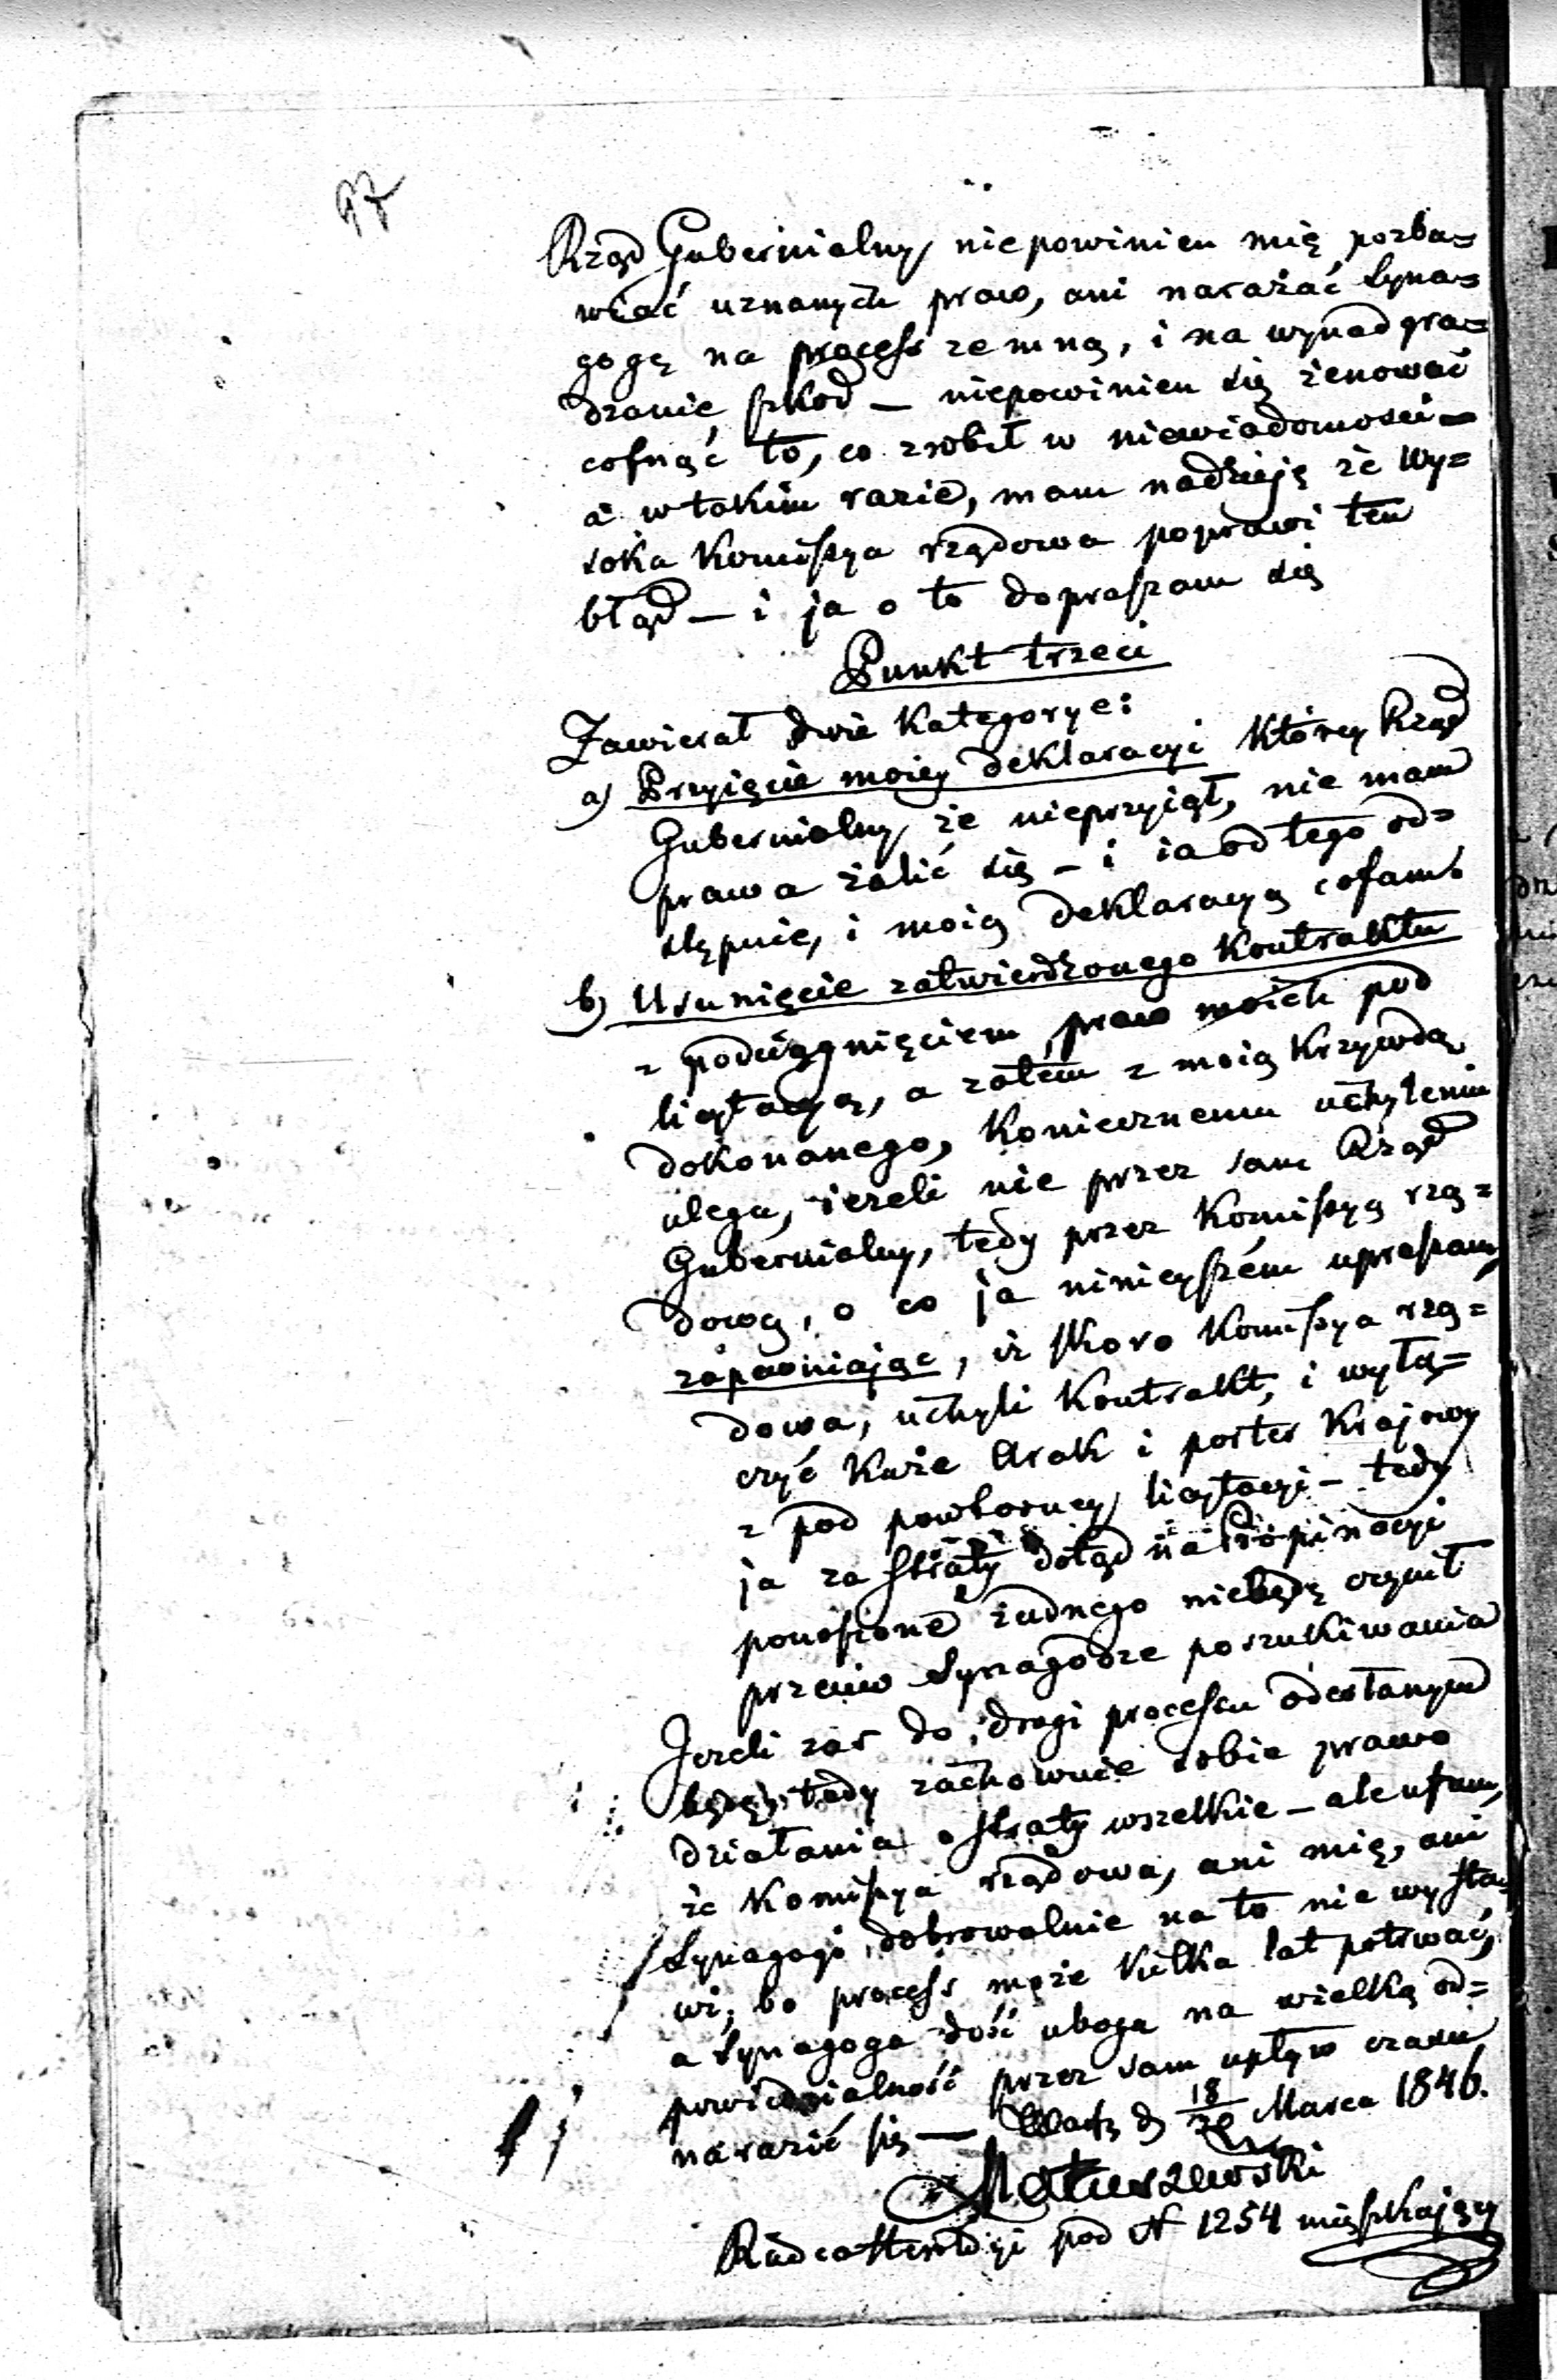 97
Rząd Gubernialny niepowinien mię pozba=
wiać uznanych praw, ani narażać Syna=
gogę na process zemną, i na wynadgra=
dzanie szkod — niepowinien się żenować
cofnąć to, co zrobił w niewiadomości —
a w takim razie, mam nadzieję że Wy=
soka Kommissya rządowa poprawi ten
błąd — i ja o to dopraszam się
Punkt trzeci
Zawierał dwie Kategorye:
a) Przyięcie moiey deklaracyi którey Rząd
Gubernialny że nieprzyiął, nie mam
prawa żalić się — i ia od tego od=
stępuię, i moią deklaracyą cofam.
b) Usunięcie zatwierdzonego Kontraktu
z podciągnięciem praw moich pod
licytacyą, a zatém z moią Krzywdą
dokonanego, Koniecznemu uchyleniu
ulega, ieżeli nie przez sam Rząd
Gubernialny, tedy przez Komissyą rzą=
dową, o co ja ninieyszém upraszam
zapewniając, iż skoro Komissya rzą=
dowa, uchyli Kontrakt, i wyłą=
czyć każe Arak i porter Krajowy
z pod powtorney licytacyi — tedy
ja za straty dotąd na Propinacyi
ponosione żadnego niebędę czynił
przeciw Synagodze poszukiwania
Jeżeli zaś do drogi processu odesłanym
będę, tedy zachowuię sobie prawo
działania o straty wszelkie — ale ufam,
że Komissya rządowa, ani mię, ani
Synagogi dobrowolnie na to nie wysta=
wi, bo process może kilka lat potrwać,
a Synagoga dość uboga na wielką od=
powiedzialność przez sam upływ czasu
narazić się — d 18/30 Marca 1846.
Matuszewski
Radca Heroldyi pod N 1254 mięszkający